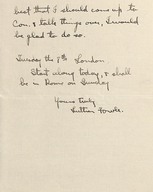 best that I should come up to
Con. & talk things over, I would
be glad to do so.
Tuesday the 7th London
Start along today, & shall
be in Rome on Sunday
Yours truly